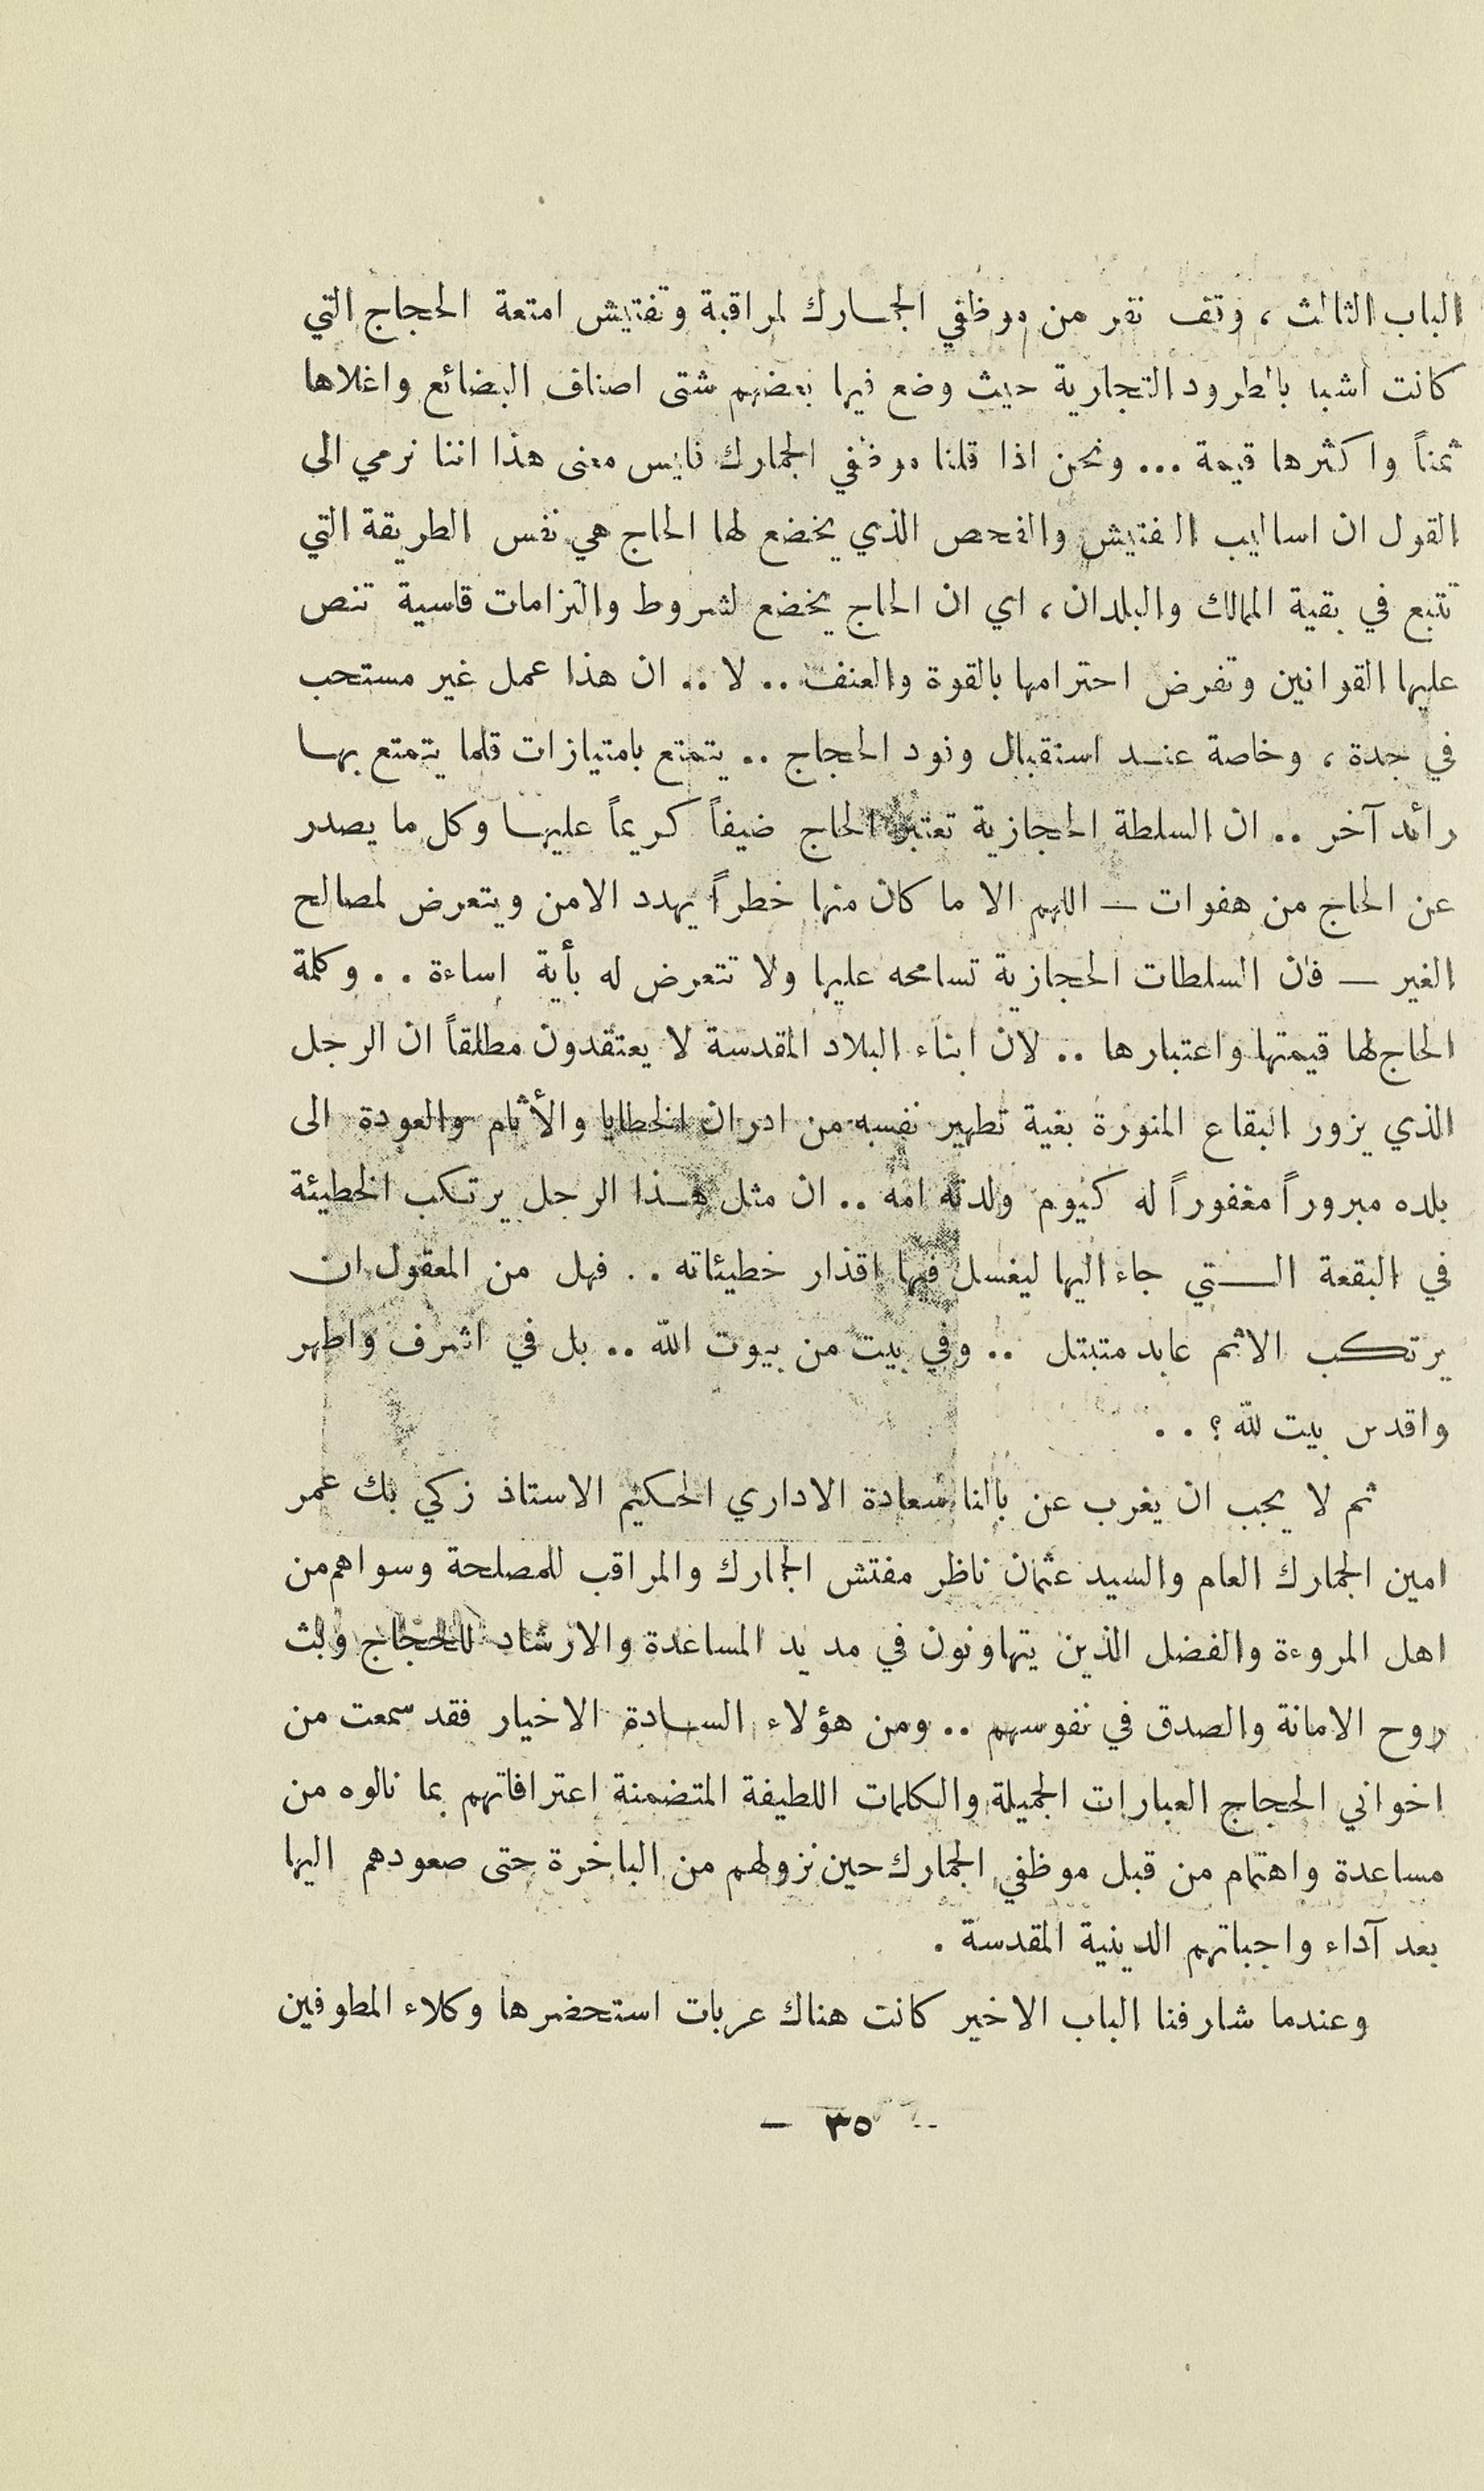 الباب الثالث ، وقف نفر من موظفي الجمارك لمراقبة وتفتيش امتعة الحجاج التي
كانت اشبه بالطرود التجارية حيث وضع فيها بعضهم شتى اصناف البضائع واغلاها
ثمناً واكثرها قيمة ... ونحن اذا قلنا موظفي الجمارك فليس معنى هذا اننا نرمي الى
القول ان اساليب التفتيش والفحص الذي يخضع لها الحاج هي نفس الطريقة التي
تتبع في بقية الممالك والبلدان ، اي ان الحاج يخضع لشروط والتزامات قاسية تنص
عليها القوانين وتفرض احترامها بالقوة والعنف .. لا .. ان هذا عمل غير مستحب
في جدة ، وخاصة عند استقبال وفود الحجاج .. يتمتع بامتيازات قلما يتمتع بها
رائد آخر .. ان السلطة الحجازية تعتبر الحاج ضيفاً كريماً عليها وكل ما يصدر
عن الحاج من هفوات — اللهم الا ما كان منها خطراً يهدد الامن ويتعرض لمصالح
الغير — فان السلطات الحجازية تسامحه عليها ولا تتعرض له بأية اساءة . . وكلمة
الحاج لها قيمتها واعتبارها .. لان ابناء البلاد المقدسة لا يعتقدون مطلقاً ان الرجل
الذي يزور البقاع المنورة بغية تطهير نفسه من ادران الخطايا والأثام والعودة الى
بلده مبروراً مغفوراً له كيوم ولدته امه .. ان مثل هذا الرجل يرتكب الخطيئة
في البقعة التي جاء اليها ليغسل فيها اقذار خطيئاته . . فهل من المعقول ان
يرتكب الاثم عابد متبتل .. وفي بيت من بيوت الله .. بل في اشرف واطهر
واقدس بيت لله ؟ . .
ثم لا يجب ان يغرب عن بالنا سعادة الاداري الحكيم الاستاذ زكي بك عمر
امين الجمارك العام والسيد عثمان ناظر مفتش الجمارك والمراقب للمصلحة وسواهم من
اهل المروءة والفضل الذين يتهاونون في مد يد المساعدة والارشاد للحجاج ولبث
روح الامانة والصدق في نفوسهم .. ومن هؤلاء السادة الاخيار فقد سمعت من
اخواني الحجاج العبارات الجميلة والكلمات اللطيفة المتضمنة اعترافاتهم بما نالوه من
مساعدة واهتمام من قبل موظفي الجمارك حين نزولهم من الباخرة حتى صعودهم اليها
بعد آداء واجباتهم الدينية المقدسة .
وعندما شارفنا الباب الاخير كانت هناك عربات استحضرها وكلاء المطوفين
— ٣٥ —